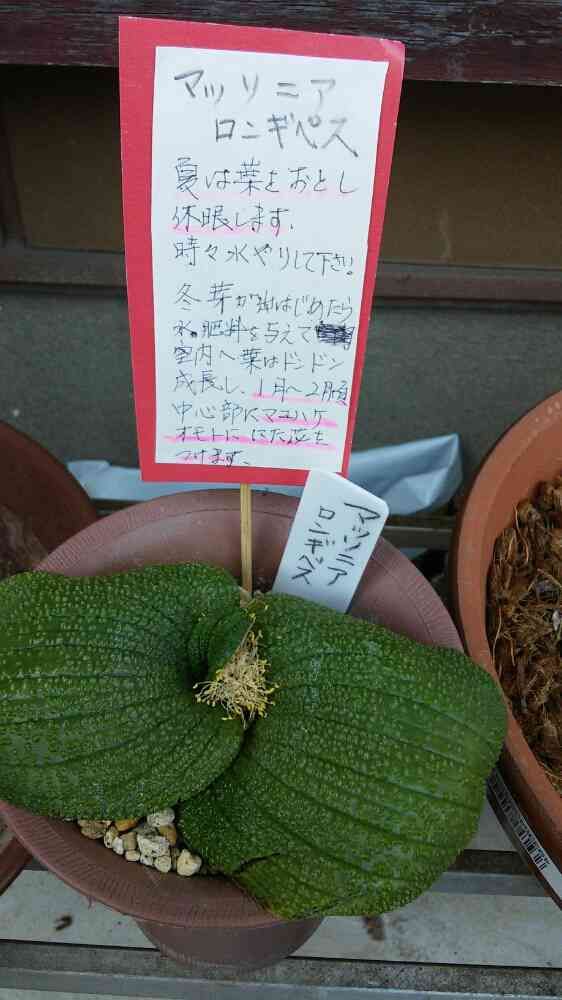 マッソニア
ロンギペス
夏は葉をおとし
休眠します.
時々水やりして下さい。
冬芽が伸はじめたら
水.肥料を与えて
室内へ葉はドンドン
成長し、1月〜2月頃
中心部にマユハケ
オモトににた花を
つけます。
マッソニア
ロンギペス